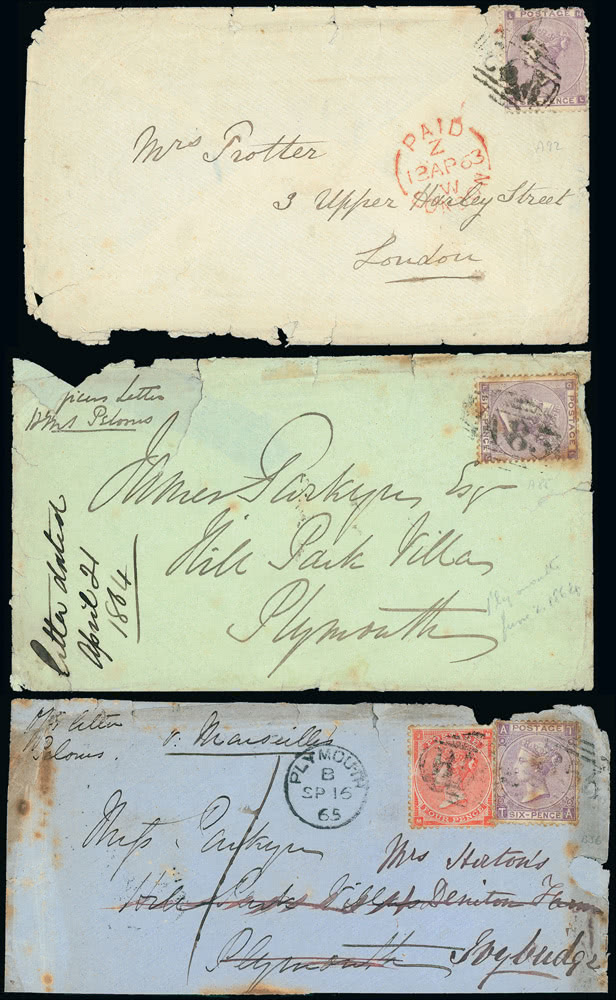 L POSTAGE H
PENCE L
A92
PAID
Z
18 AP 63
Mrs Trotter
3 Upper Harley Street
London
Letter
HMS Pelorus
SIX PENCE
POSTAGE
James Parkyn Esq
Hill Park Villas
Plymouth
Letter dated
April 21
1864
Plymouth
June 2, 1864
Letter
Pelorus
v. Marseilles
PLYMOUTH
B
SP 16
65
FOUR PENCE
A POSTAGE T
T SIX-PENCE A
Miss Parkyn
Mrs Horton's
Hill Park Villas Deniton Farm
Plymouth Ivybridge